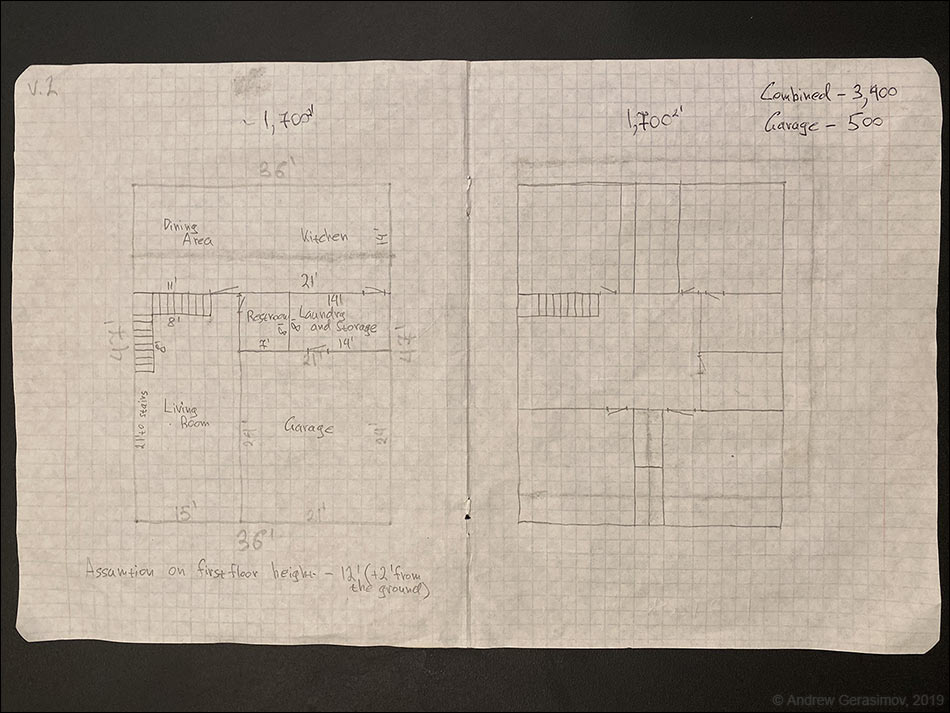 v.2
~ 1,700²'
1,700²'
Combined - 3,400
Garage - 500
36'
Dining
Area
Kitchen
14'
11'
21'
8'
8'
14'
Restroom
8'
8'
Laundry
and Storage
7'
14'
21'
47'
47'
21' to stairs
Living
Room
Garage
24'
24'
15'
21'
36'
Assumtion on first floor height - 12' (+2' from
the ground)
© Andrew Gerasimov, 2019